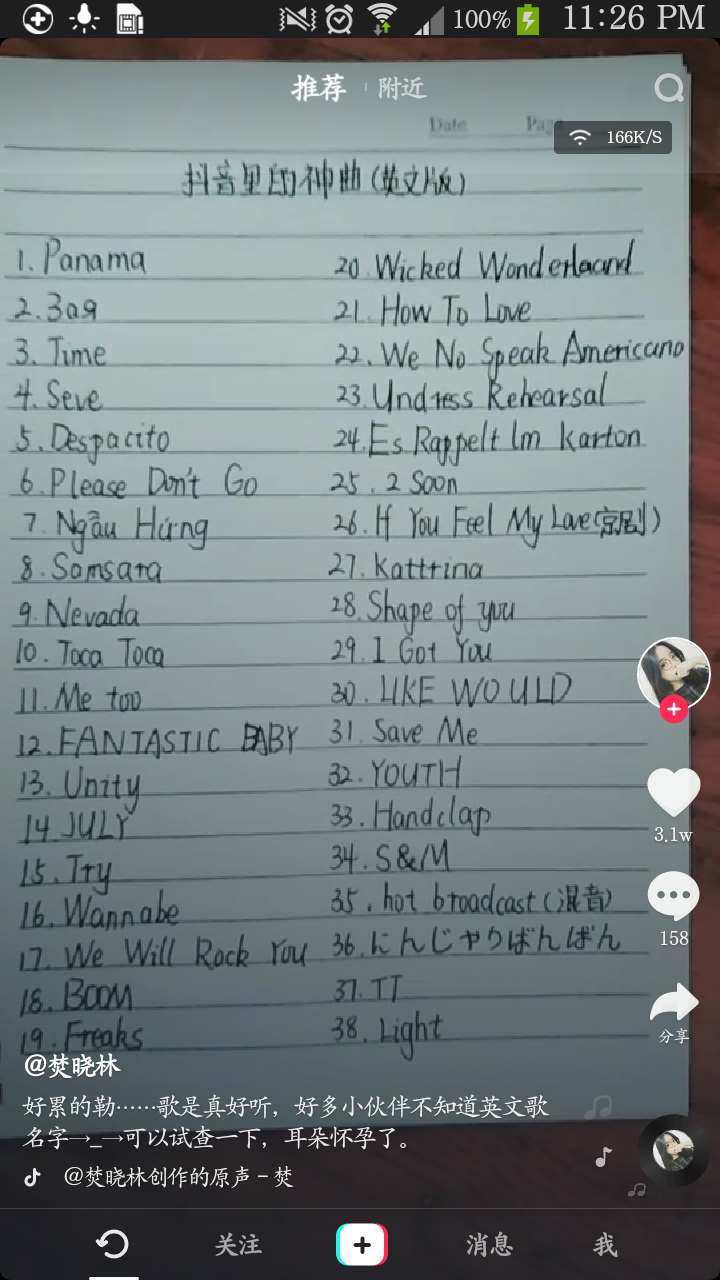 100% 11:26 PM
推荐 附近
Date Page
166K/S
抖音里的神曲(英文版)
1. Panama
2. Зая
3. Time
4. Seve
5. Despacito
6. Please Don't Go
7. Ngẫu Hứng
8. Somsara
9. Nevada
10. Toca Toca
11. Me too
12. FANTASTIC BABY
13. Unity
14 JULY
15. Try
16. Wannabe
17. We Will Rock You
18. BOOM
19. Freaks
20. Wicked Wonderlaand
21. How To Love
22. We No Speak Americano
23. Undress Rehearsal
24. Es Rappelt Im Karton
25. 2 Soon
26. If You Feel My Love(京剧)
27. Kattrina
28. Shape of you
29. I Got You
30. LIKE WOULD
31. Save Me
32. YOUTH
33. Handclap
34. S&M
35. hot broadcast(混音)
36. にんじゃりばんばん
37. TT
38. Light
3.1w
158
分享
@焚晓林
好累的勒……歌是真好听，好多小伙伴不知道英文歌
名字→_→可以试查一下，耳朵怀孕了。
@焚晓林创作的原声 - 焚
关注 消息 我